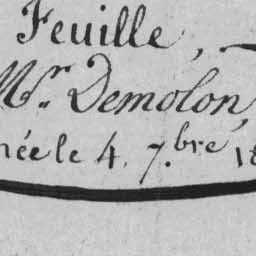 Feuille,
Mr. Demolon,
née le 4. 7.bre 18